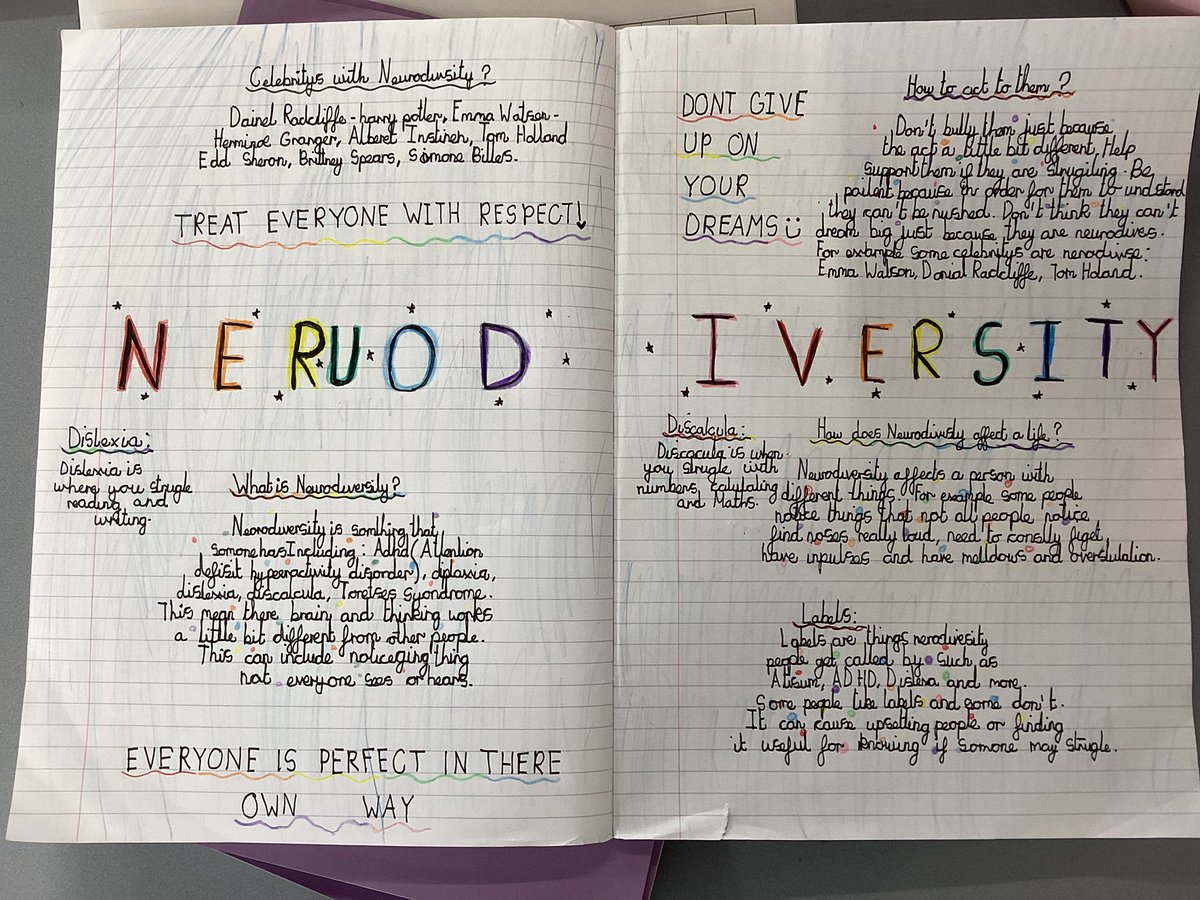 Celebritys with Neurodivsity?
Dainel Radcliffe - harry potter, Emma Watson -
Herminoe Granger, Alberet Instineh, Tom Holland
Edd Sheron, Brittney Spears, Simone Billes.
TREAT EVERYONE WITH RESPECT!
NERUOD
Dislexia:
Dislexia is
where you strugle
reading and
writing.
What is Neurodiversity?
Neorodiversity is somthing that
somone has Including: Adhd (Attantion
defisit hyperactivity disorder), diplaxia,
dislexia, discalcula, Toretses Syondrome.
This mean there brainy and thinking works
a little bit different from other people.
This can include noticeging thing
not everyone sees or hears.
EVERYONE IS PERFECT IN THERE
OWN WAY
DONT GIVE
UP ON
YOUR
DREAMS
How to act to them?
Don't bully them just because
the act a little bit different, Help
support them if they are strugiling. Be
patient because in order for them to undstand
they can't be rushed. Don't think they can't
dream big just because they are neurodives.
For example some celebritys are nerodivse:
Emma Watson, Danial Radcliffe, Tom Holand.
IVERSITY
Discalcula:
Discacula is when
you strugle with
numbers, calytating
and Maths.
How does Neurodivsty affect a life?
Neurodiversity affects a person with
different things. For example some people
notice things that not all people notice
find noses really loud, need to constly figet,
have inpulses and have meltdows and overstulation.
Labels:
Labels are things nerodivesity
people get called by such as
Atisum, ADHD, Dislexa and more.
Some people like labels and some don't.
It can cause upsetting people or finding
it useful for knowing if somone may strugle.